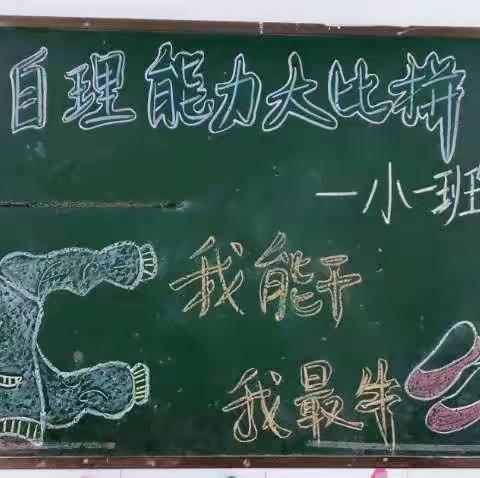 自理能力大比拼
一小一班
我能干
我最牛